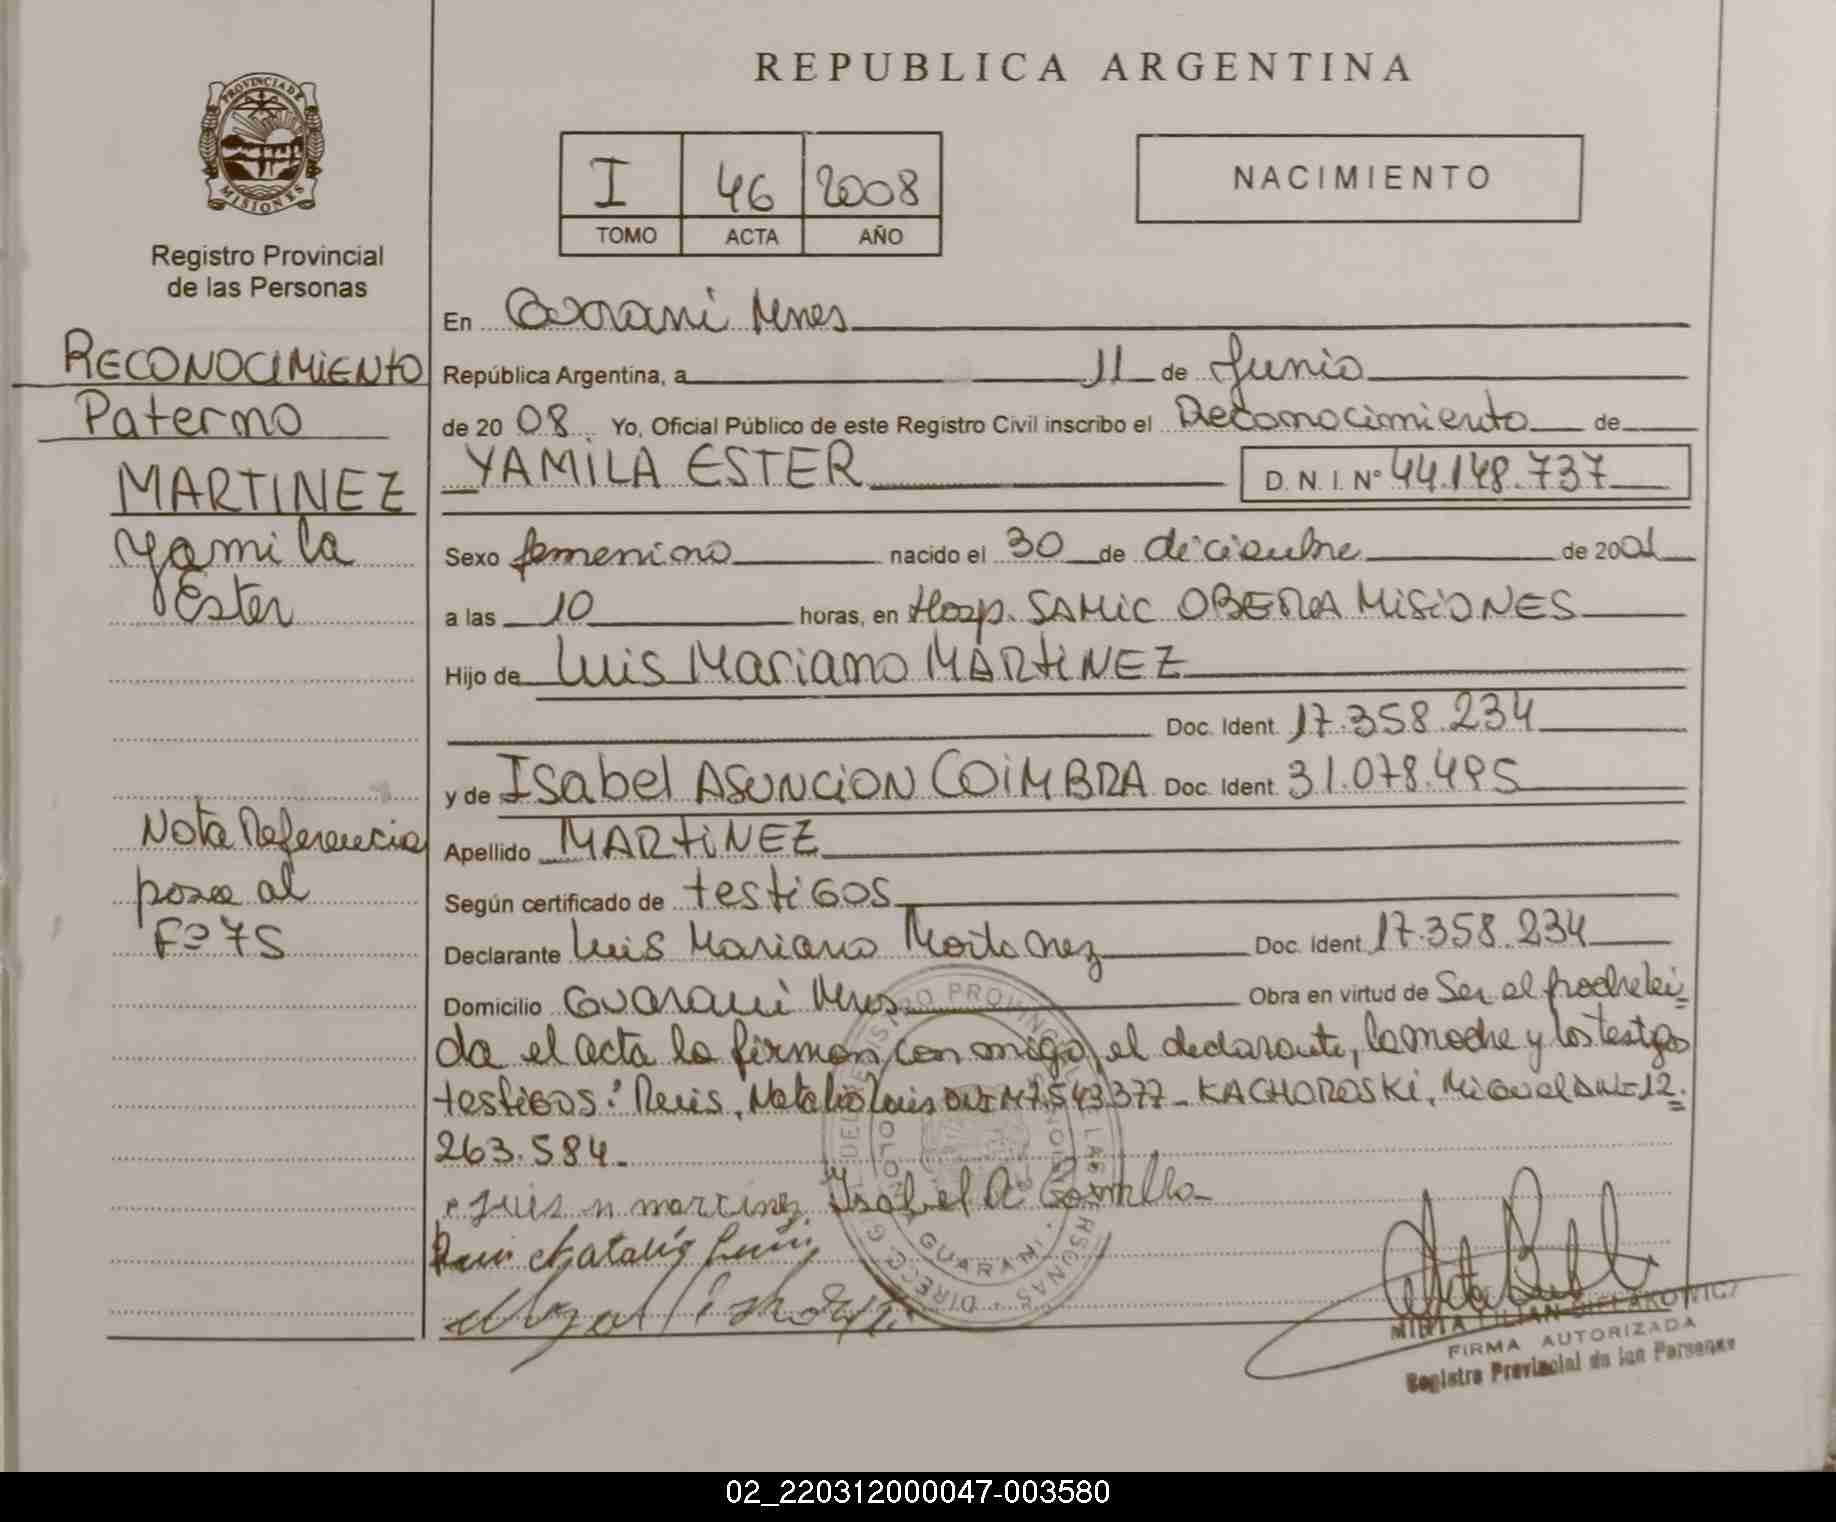 REPUBLICA ARGENTINA
PROVINCIA DE
MISIONES
Registro Provincial
de las Personas
I 46 2008
TOMO ACTA AÑO
NACIMIENTO
RECONOCIMIENTO
Paterno
MARTINEZ
Yamila
Ester
Nota Referencia
pasa al
Fº 75
En Guarani Mnes
República Argentina, a 11 de Junio
de 2008. Yo, Oficial Público de este Registro Civil inscribo el Reconocimiento de
YAMILA ESTER D. N. I. Nº 44.148.737
Sexo femenino nacido el 30 de diciembre de 2001
a las 10 horas, en Hosp. SAMIC OBERA MISIONES
Hijo de Luis Mariano MARTINEZ
Doc. Ident. 17.358.234
y de Isabel ASUNCION COIMBRA Doc. Ident. 31.078.495
Apellido MARTINEZ
Según certificado de testigos
Declarante Luis Mariano Martinez Doc. Ident. 17.358.234
Domicilio Guarani Mnes Obra en virtud de Ser el padre lei=
da el acta la firman con migo, el declarante, la madre y los testigos
testigos: Natalio Luis DNI Nº 7.543.377 - KACHOROSKI, Miguel DNI= 12.=
263.584.
Luis M martinez Isabel A
GUARANI
FIRMA AUTORIZADA
Registro Provincial de las Personas
02_220312000047-003580